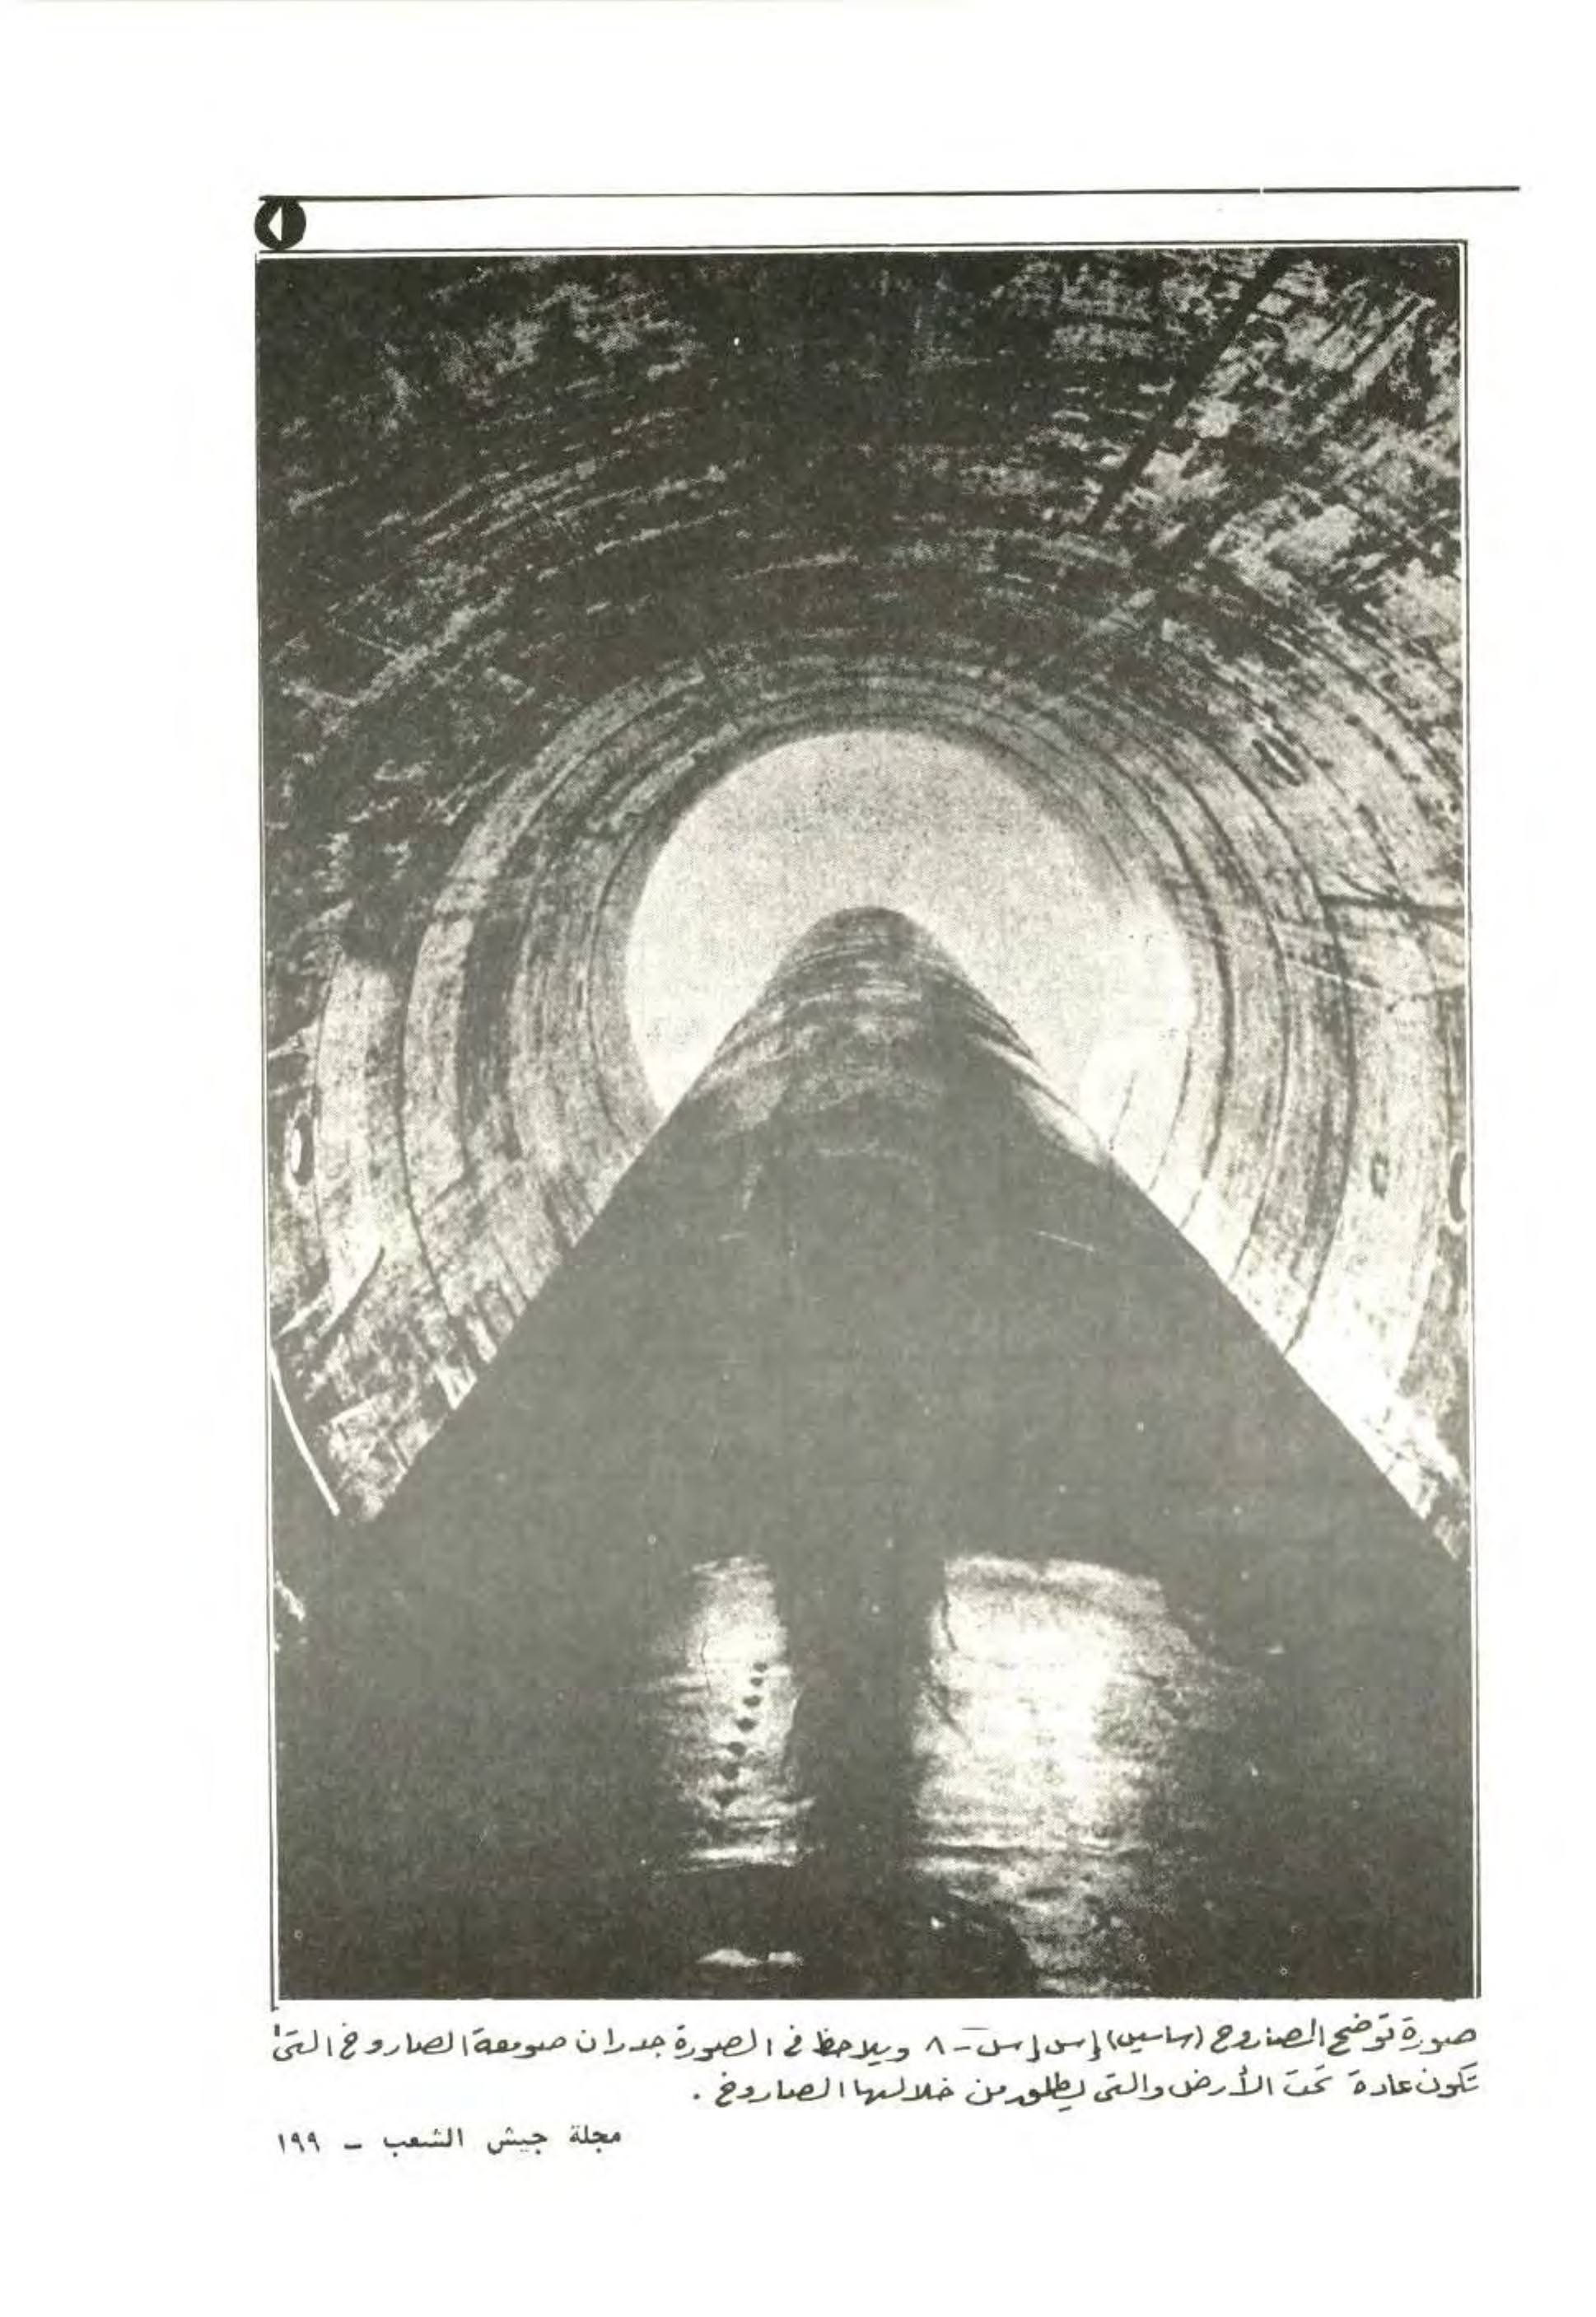 صورة توضح الصاروخ (ساسين) إس إس - ٨ ويلاحظ في الصورة جدران صومعة الصاروخ التي
تكون عادة تحت الأرض والتي يطلق من خلالها الصاروخ .
مجلة جيش الشعب - ١٩٩